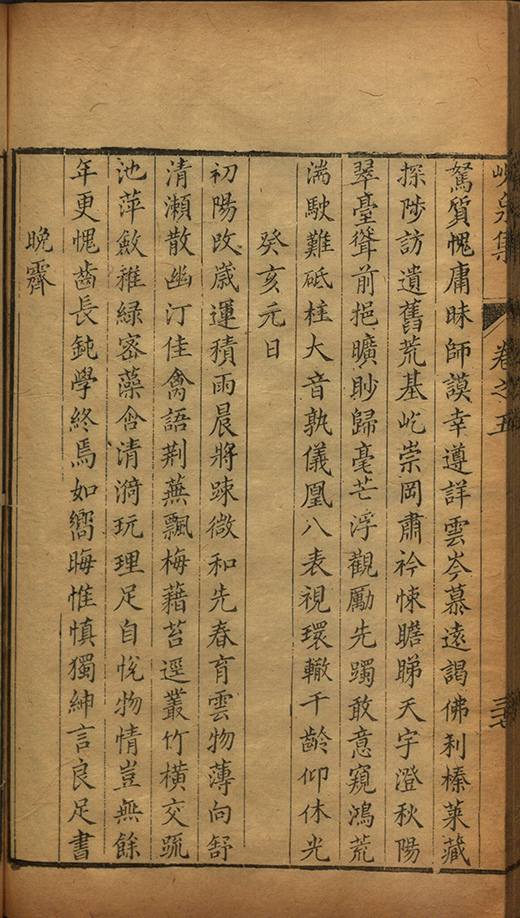 峴泉集 卷之五
駑質愧庸昧師謨幸遵詳雲岑慕遠謁佛利榛萊藏
探陟訪遺舊荒基屹崇岡肅衿悚瞻睇天宇澄秋陽
翠臺聳前挹曠眇歸毫芒浮觀勵先躅敢意窺鴻荒
湍駛難砥柱大音孰儀凰八表視環轍千齡仰休光
癸亥元日
初陽改歲運積雨晨將踈微和先春育雲物薄向舒
清瀬散幽汀佳禽語荆蕪飄梅藉苔逕叢竹橫交疏
池萍斂稚綠宻藻含清漪玩理足自悅物情豈無餘
年更愧齒長鈍學終焉如嚮晦惟慎獨紳言良足書
晚霽